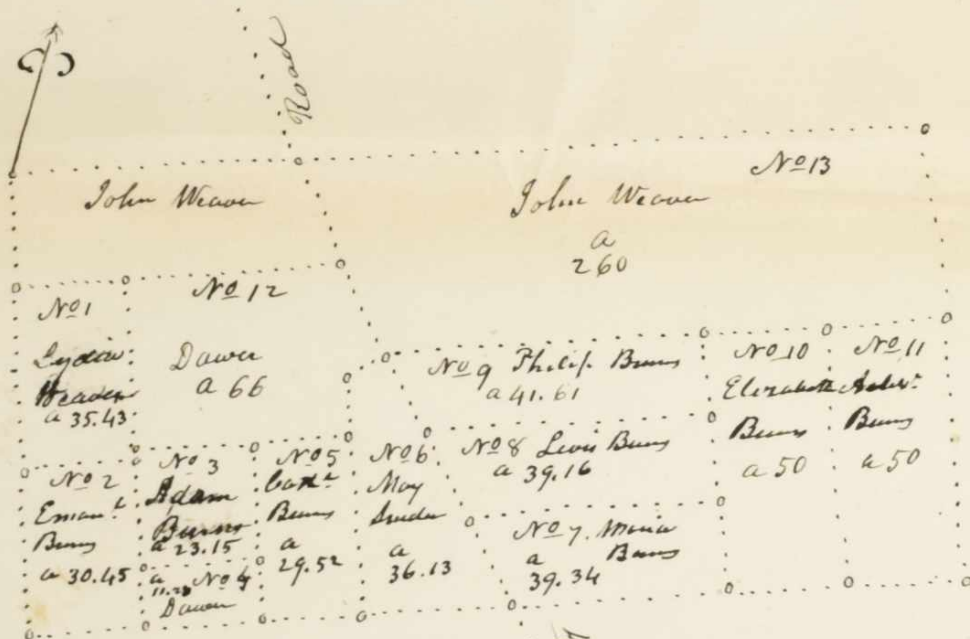 Road
John Weaver
No 13
John Weaver
a
260
No 1
Lydia
Weaver
a 35.43
No 12
Dower
a 66
No 9 Philip Burns
a 41.61
No 10
Elizabeth
Burns
a 50
No 11
Burns
a 50
No 2
Emanl
Burns
a 30.45
No 3
Adam
Burns
a 23.15
a No 4
Dower
No 5
Cathe
Burns
a
29.52
No 6
May
Snider
a
36.13
No 8 Levis Burns
a 39.16
No 7. Maria
a Burns
39.34